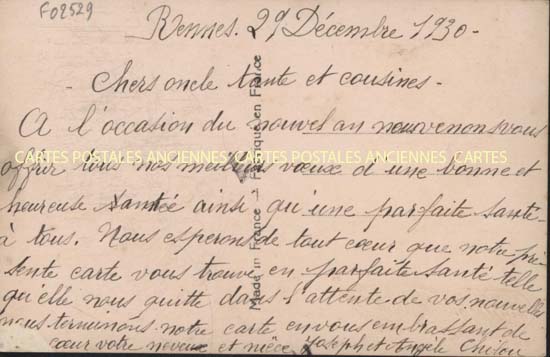 F02529
Rennes. 29 Décembre 1930-
- Chers oncle tante et cousines -
A l'occasion du nouvel an nous venons vous
CARTES POSTALES ANCIENNES CARTES POSTALES ANCIENNES CARTES POSTALES ANCIENNES CARTES
offrir tous nos meilleurs vœux d'une bonne et
heureuse année ainsi qu'une parfaite santé
à tous. Nous esperons de tout cœur que notre pré
sente carte vous trouve en parfaite santé telle
qu'elle nous quitte dans l'attente de vos nouvelles
nous terminons notre carte en vous embrassant de
cœur votre neveux et nièce, Joseph et Angèle
Made in France - Fabriqué en France